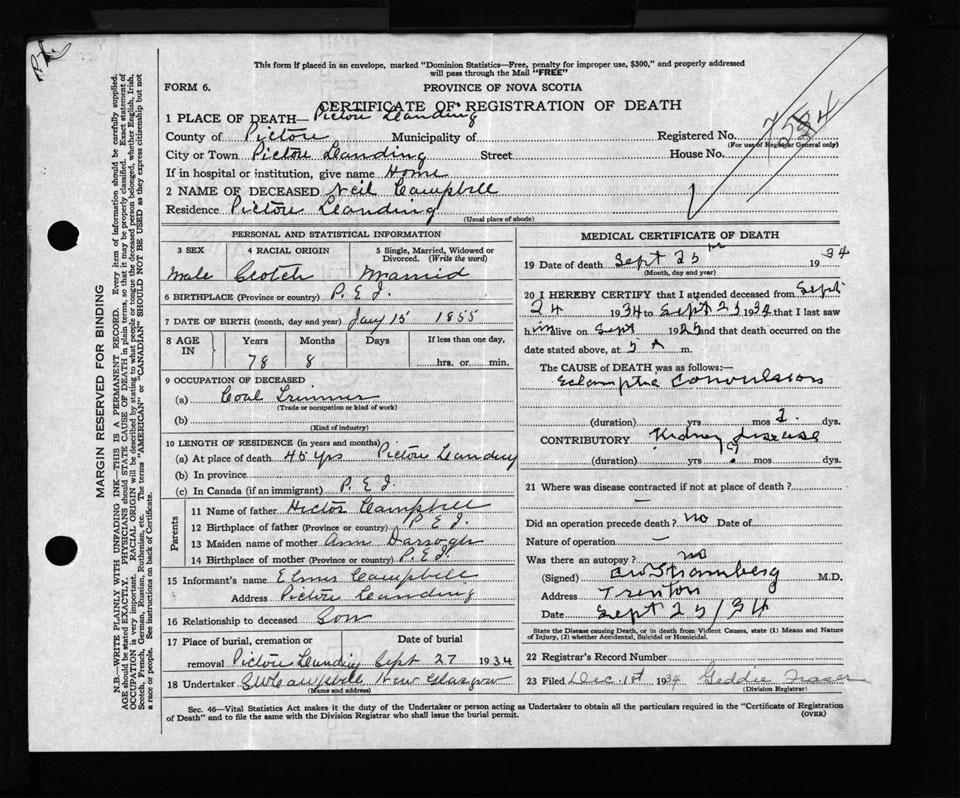 This form if placed in an envelope, marked "Dominion Statistics—Free, penalty for improper use, $300," and properly addressed
will pass through the Mail "FREE"
FORM 6.
PROVINCE OF NOVA SCOTIA
CERTIFICATE OF REGISTRATION OF DEATH
1 PLACE OF DEATH— Pictou Landing
County of Pictou Municipality of Registered No. 7524
(For use of Registrar General only)
City or Town Pictou Landing Street House No.
If in hospital or institution, give name Home
2 NAME OF DECEASED Neil Campbell
Residence Pictou Landing
(Usual place of abode)
MARGIN RESERVED FOR BINDING
N.B.—WRITE PLAINLY WITH UNFADING INK—THIS IS A PERMANENT RECORD. Every item of information should be carefully supplied.
AGE should be stated EXACTLY. PHYSICIANS should STATE CAUSE OF DEATH in plain terms, so that it may be properly classified. Exact statement of
OCCUPATION is very important. RACIAL ORIGIN will be described by stating to what people or tongue the deceased person belonged, whether English, Irish,
Scotch, French, German, Russian, Ruthenian, etc. The terms "AMERICAN" or "CANADIAN" SHOULD NOT BE USED as they express citizenship but not
a race or people. See instructions on back of Certificate.
PERSONAL AND STATISTICAL INFORMATION
3 SEX 4 RACIAL ORIGIN 5 Single, Married, Widowed or
Divorced. (Write the word)
Male Scotch Married
6 BIRTHPLACE (Province or country) P.E.I.
7 DATE OF BIRTH (month, day and year) Jany 15 1855
8 AGE IN Years Months Days If less than one day,
78 8 hrs. or min.
9 OCCUPATION OF DECEASED
(a) Coal Trimmer
(Trade or occupation or kind of work)
(b)
(Kind of industry)
10 LENGTH OF RESIDENCE (in years and months)
(a) At place of death 45 yrs Pictou Landing
(b) In province
(c) In Canada (if an immigrant) P.E.I.
Parents
11 Name of father Hector Campbell
12 Birthplace of father (Province or country) P.E.I.
13 Maiden name of mother Ann
14 Birthplace of mother (Province or country) P.E.I.
15 Informant's name Campbell
Address Pictou Landing
16 Relationship to deceased Son
17 Place of burial, cremation or Date of burial
removal Pictou Landing Sept 27 1934
18 Undertaker Campbell New Glasgow
(Name and address)
MEDICAL CERTIFICATE OF DEATH
19 Date of death Sept 25 1934
(Month, day and year)
20 I HEREBY CERTIFY that I attended deceased from Sept
24 1934 to Sept 25 1934 that I last saw
him alive on Sept 1925 and that death occurred on the
date stated above, at 5 A m.
The CAUSE OF DEATH was as follows:—
Eclamptic Convulsion
(duration) yrs mos 2 dys.
CONTRIBUTORY Kidney disease
(duration) yrs ? mos dys.
21 Where was disease contracted if not at place of death?
—
Did an operation precede death? no Date of
Nature of operation —
Was there an autopsy? no
(Signed) M.D.
Address Trenton
Date Sept 25/34
State the Disease causing Death, or in death from Violent Causes, state (1) Means and Nature
of Injury, (2) whether Accidental, Suicidal or Homicidal.
22 Registrar's Record Number
23 Filed Dec. 1st 1934 Geddie Fraser
(Division Registrar)
Sec. 46—Vital Statistics Act makes it the duty of the Undertaker or person acting as Undertaker to obtain all the particulars required in the "Certificate of Registration
of Death" and to file the same with the Division Registrar who shall issue the burial permit.
(OVER)